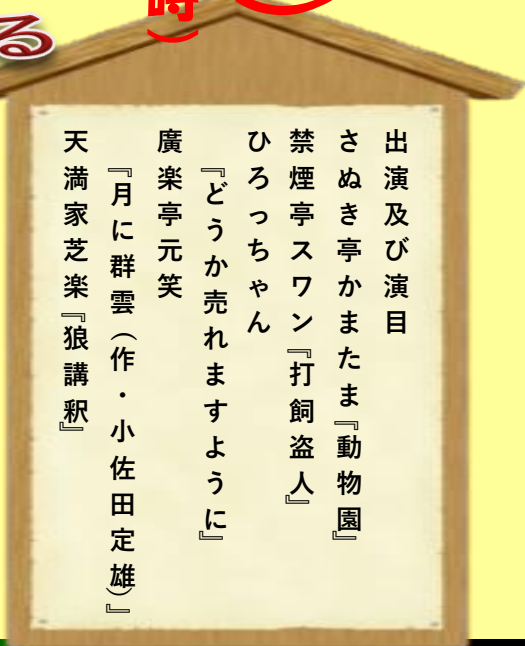 る
時）
出演及び演目
さぬき亭かまたま『動物園』
禁煙亭スワン『打飼盗人』
ひろっちゃん
『どうか売れますように』
廣楽亭元笑
『月に群雲（作・小佐田定雄）』
天満家芝楽『狼講釈』